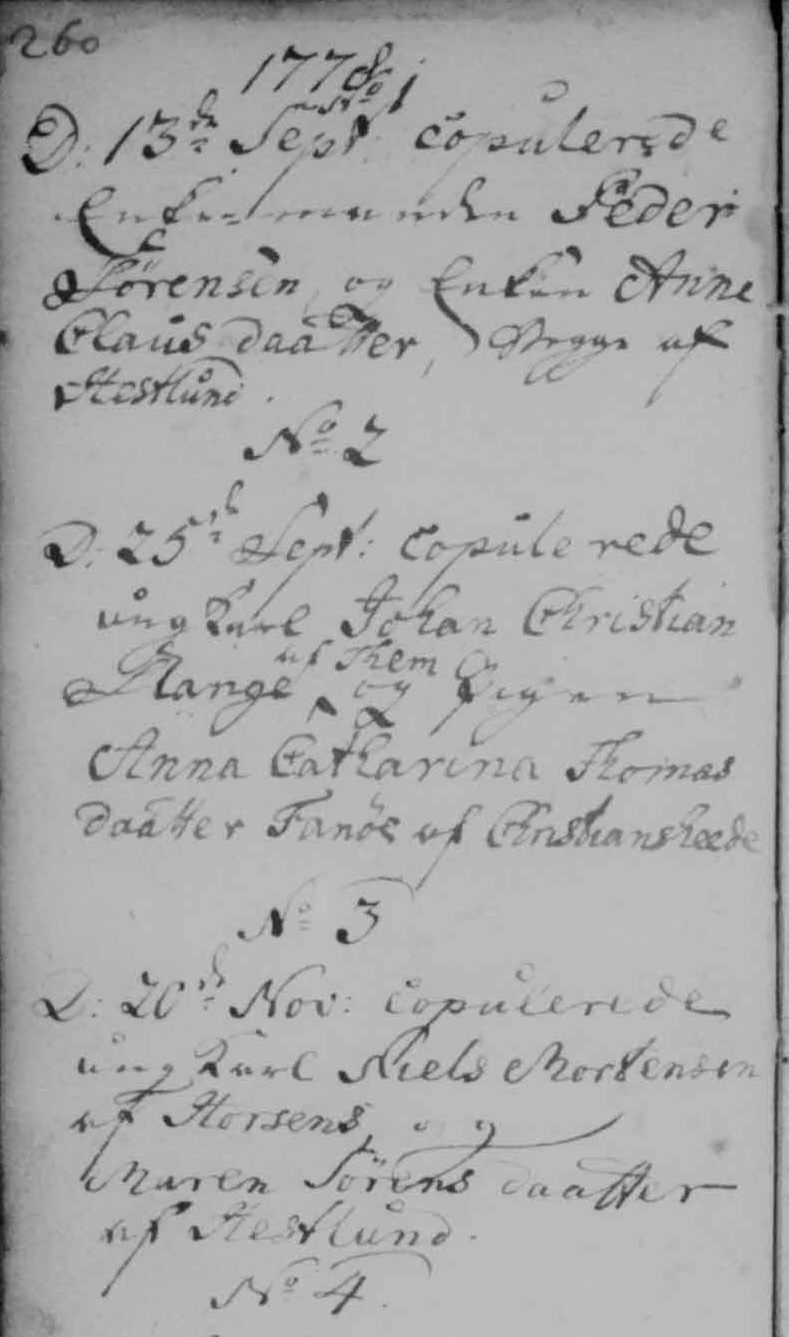 260
1778
No 1
D: 13de Sept: Copulerede
Enkemanden Peder
Sörensen, og Enken Anne
Claus daatter, Begge af
Hestlund.
No 2
D: 25de Sept: Copulerede
ungKarl Johan Christian
af Them
Stange, og Pigen
Anna Catharina Thomas
daatter Fanöe af Christiansheede
No 3
D: 20de Nov: Copulerede
ungKarl Niels Mortensen
af Horsens, og
Maren Sörens daatter
af Hestlund.
No 4.